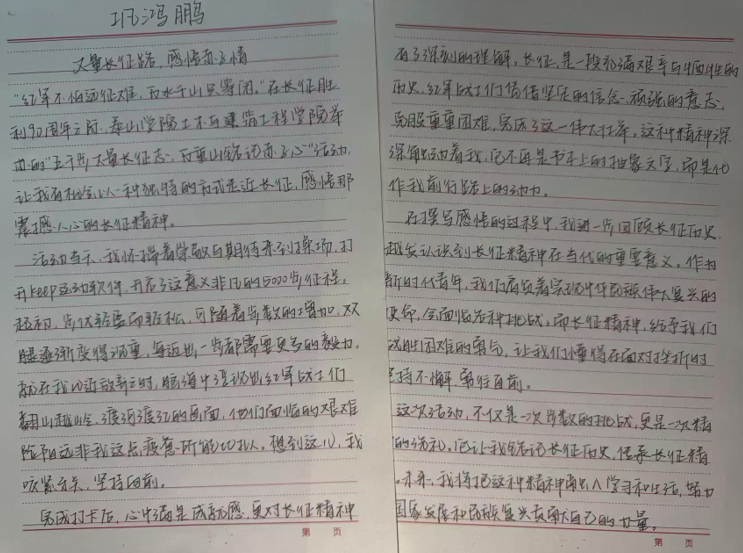 巩鸿鹏
丈量长征路，感悟赤子情
“红军不怕远征难，万水千山只等闲。”在长征胜
利90周年之际，泰山学院土木与建筑工程学院举
办的“五千步丈量长征志，万重山铭记赤子心”活动，
让我有机会以一种独特的方式走近长征，感悟那
震撼人心的长征精神。
活动当天，我怀揣着崇敬与期待来到操场，打
开keep运动软件，开启了这意义非凡的5000步征程。
起初，步伐轻盈而轻松，可随着步数的增加，双
腿逐渐变得沉重，每迈出一步都需要更多的毅力。
就在我心生放弃之时，脑海中浮现出红军战士们
翻山越岭、渡河渡江的画面，他们面临的艰难
险阻远非我这点疲惫所能比拟。想到这儿，我
咬紧牙关，坚持向前。
完成打卡后，心中满是成就感，更对长征精神
第 页
有了深刻的理解，长征，是一段充满艰辛与牺牲的
历史，红军战士们凭借坚定的信念、顽强的意志，
克服重重困难，完成了这一伟大壮举，这种精神深
深触动着我，它不再是书本上的抽象文字，而是化
作我前行路上的动力。
在撰写感悟的过程中，我进一步回顾长征历史，
越发认识到长征精神在当代的重要意义。作为
新时代青年，我们肩负着实现中华民族伟大复兴的
使命，会面临各种挑战，而长征精神，给予我们
战胜困难的勇气，让我们懂得在面对挫折时
坚持不懈，勇往直前。
这次活动，不仅是一次步数的挑战，更是一次精
的洗礼，它让我铭记长征历史，传承长征精
。未来，我将把这种精神融入学习和生活，努力
国家发展和民族复兴贡献自己的力量。
第 页